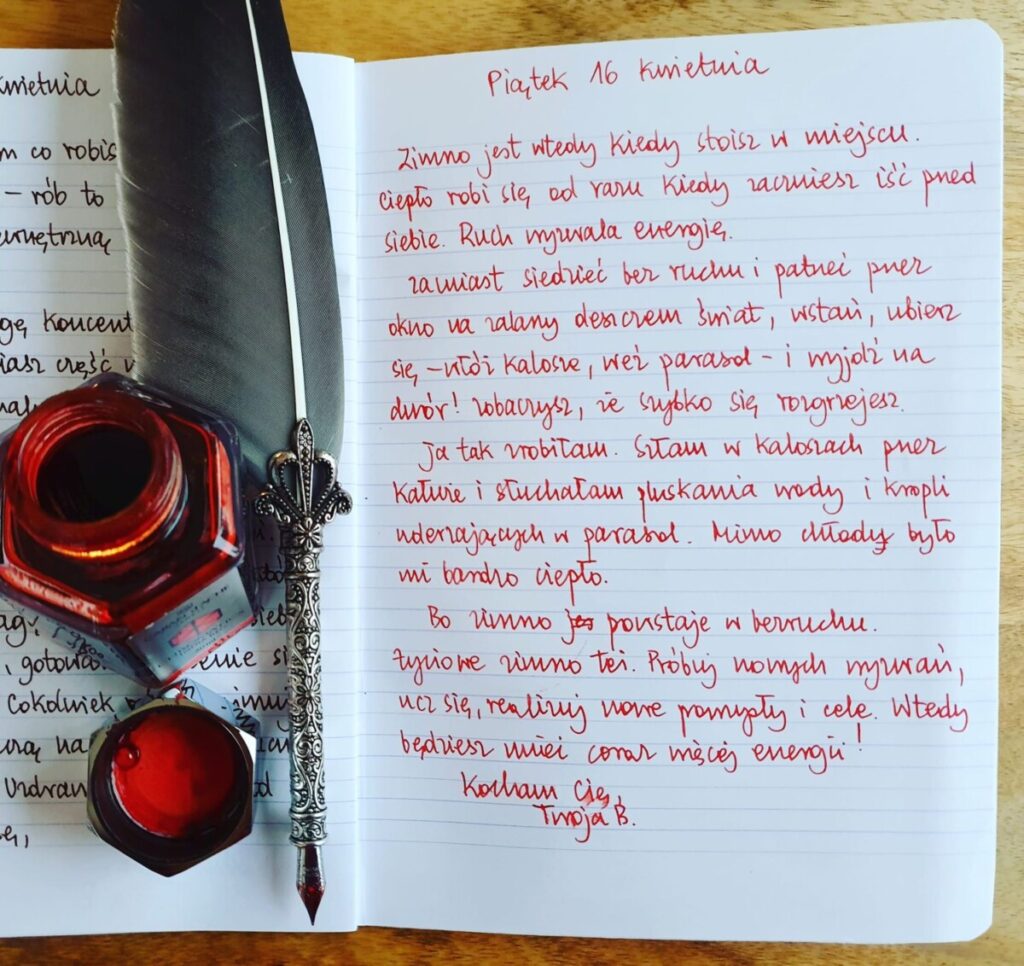 Kwietnia
co robis
– rób to
wnętrzną
gę koncent
iasz część w
gotowa.
enie si
Cokolwiek
rą na
Uzdraw
Piątek 16 kwietnia
Zimno jest wtedy kiedy stoisz w miejscu.
Ciepło robi się od razu kiedy zaczniesz iść przed
siebie. Ruch wyzwala energię.
Zamiast siedzieć bez ruchu i patrzeć przez
okno na zalany deszczem świat, wstań, ubierz
się, – włóż kalosze, weź parasol – i wyjdź na
dwór! Zobaczysz, że szybko się rozgrzejesz.
Ja tak zrobiłam. Szłam w kaloszach przez
kałuże i słuchałam pluskania wody i kropli
uderzających w parasol. Mimo chłody było
mi bardzo ciepło.
Bo zimno powstaje w bezruchu.
Życiowe zimno też. Próbuj nowych wyzwań,
ucz się, realizuj nowe pomysły i cele. Wtedy
będziesz mieć coraz więcej energii!
Kocham Cię,
Twoja B.